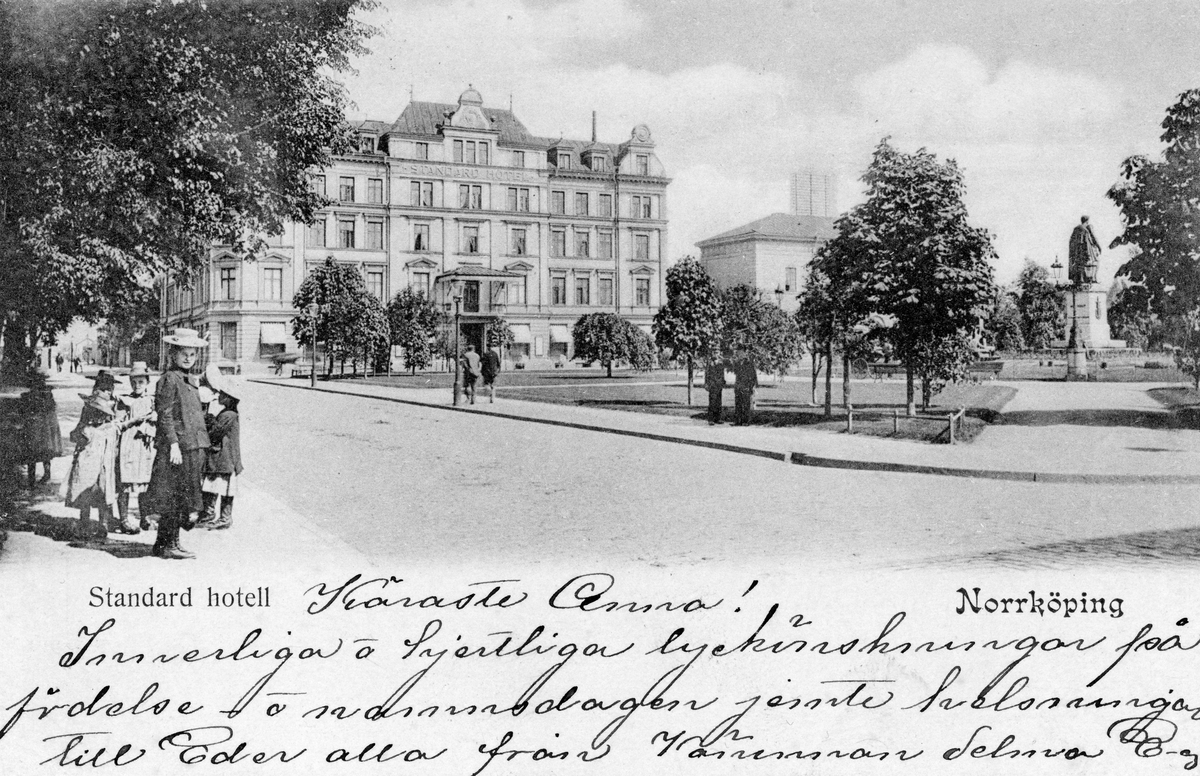 STANDARD HOTEL
Standard hotell
Käraste Anna!
Norrköping
Innerliga o hjertliga lyckönskningar på
födelse - o namnsdagen jemte helsningar
till Eder alla från Väninnan Selma